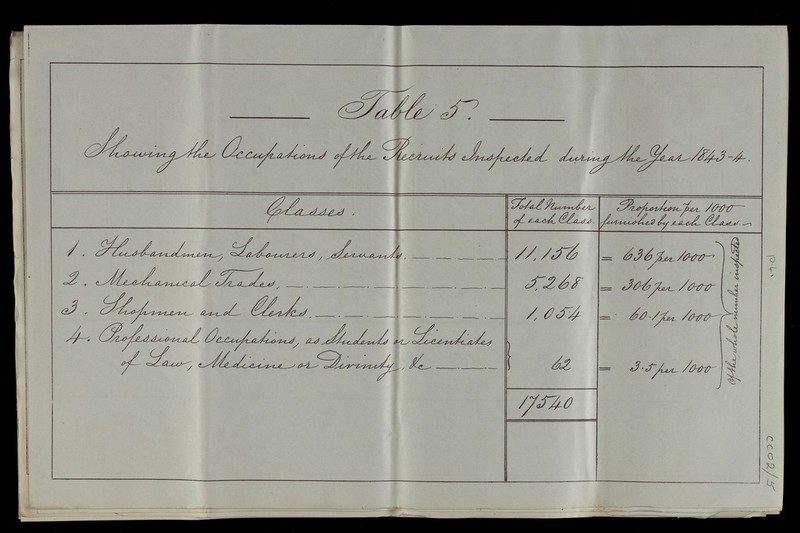 Table 5.
Showing the Occupations of the Recruits Inspected during the Year 1843-4.
Classes.
Total Number of each Class.
Proportion per 1000 furnished by each Class
1. Husbandmen, Labourers, Servants. 11,156 = 636 per 1000
2. Mechanical Trades. 5,268 = 306 per 1000
3. Shopmen and Clerks. 1,054 = 60.1 per 1000
4. Professional Occupations, as Students or Licentiates
of Law, Medicine or Divinity &c 62 = 3.5 per 1000
of the whole number inspected
17540